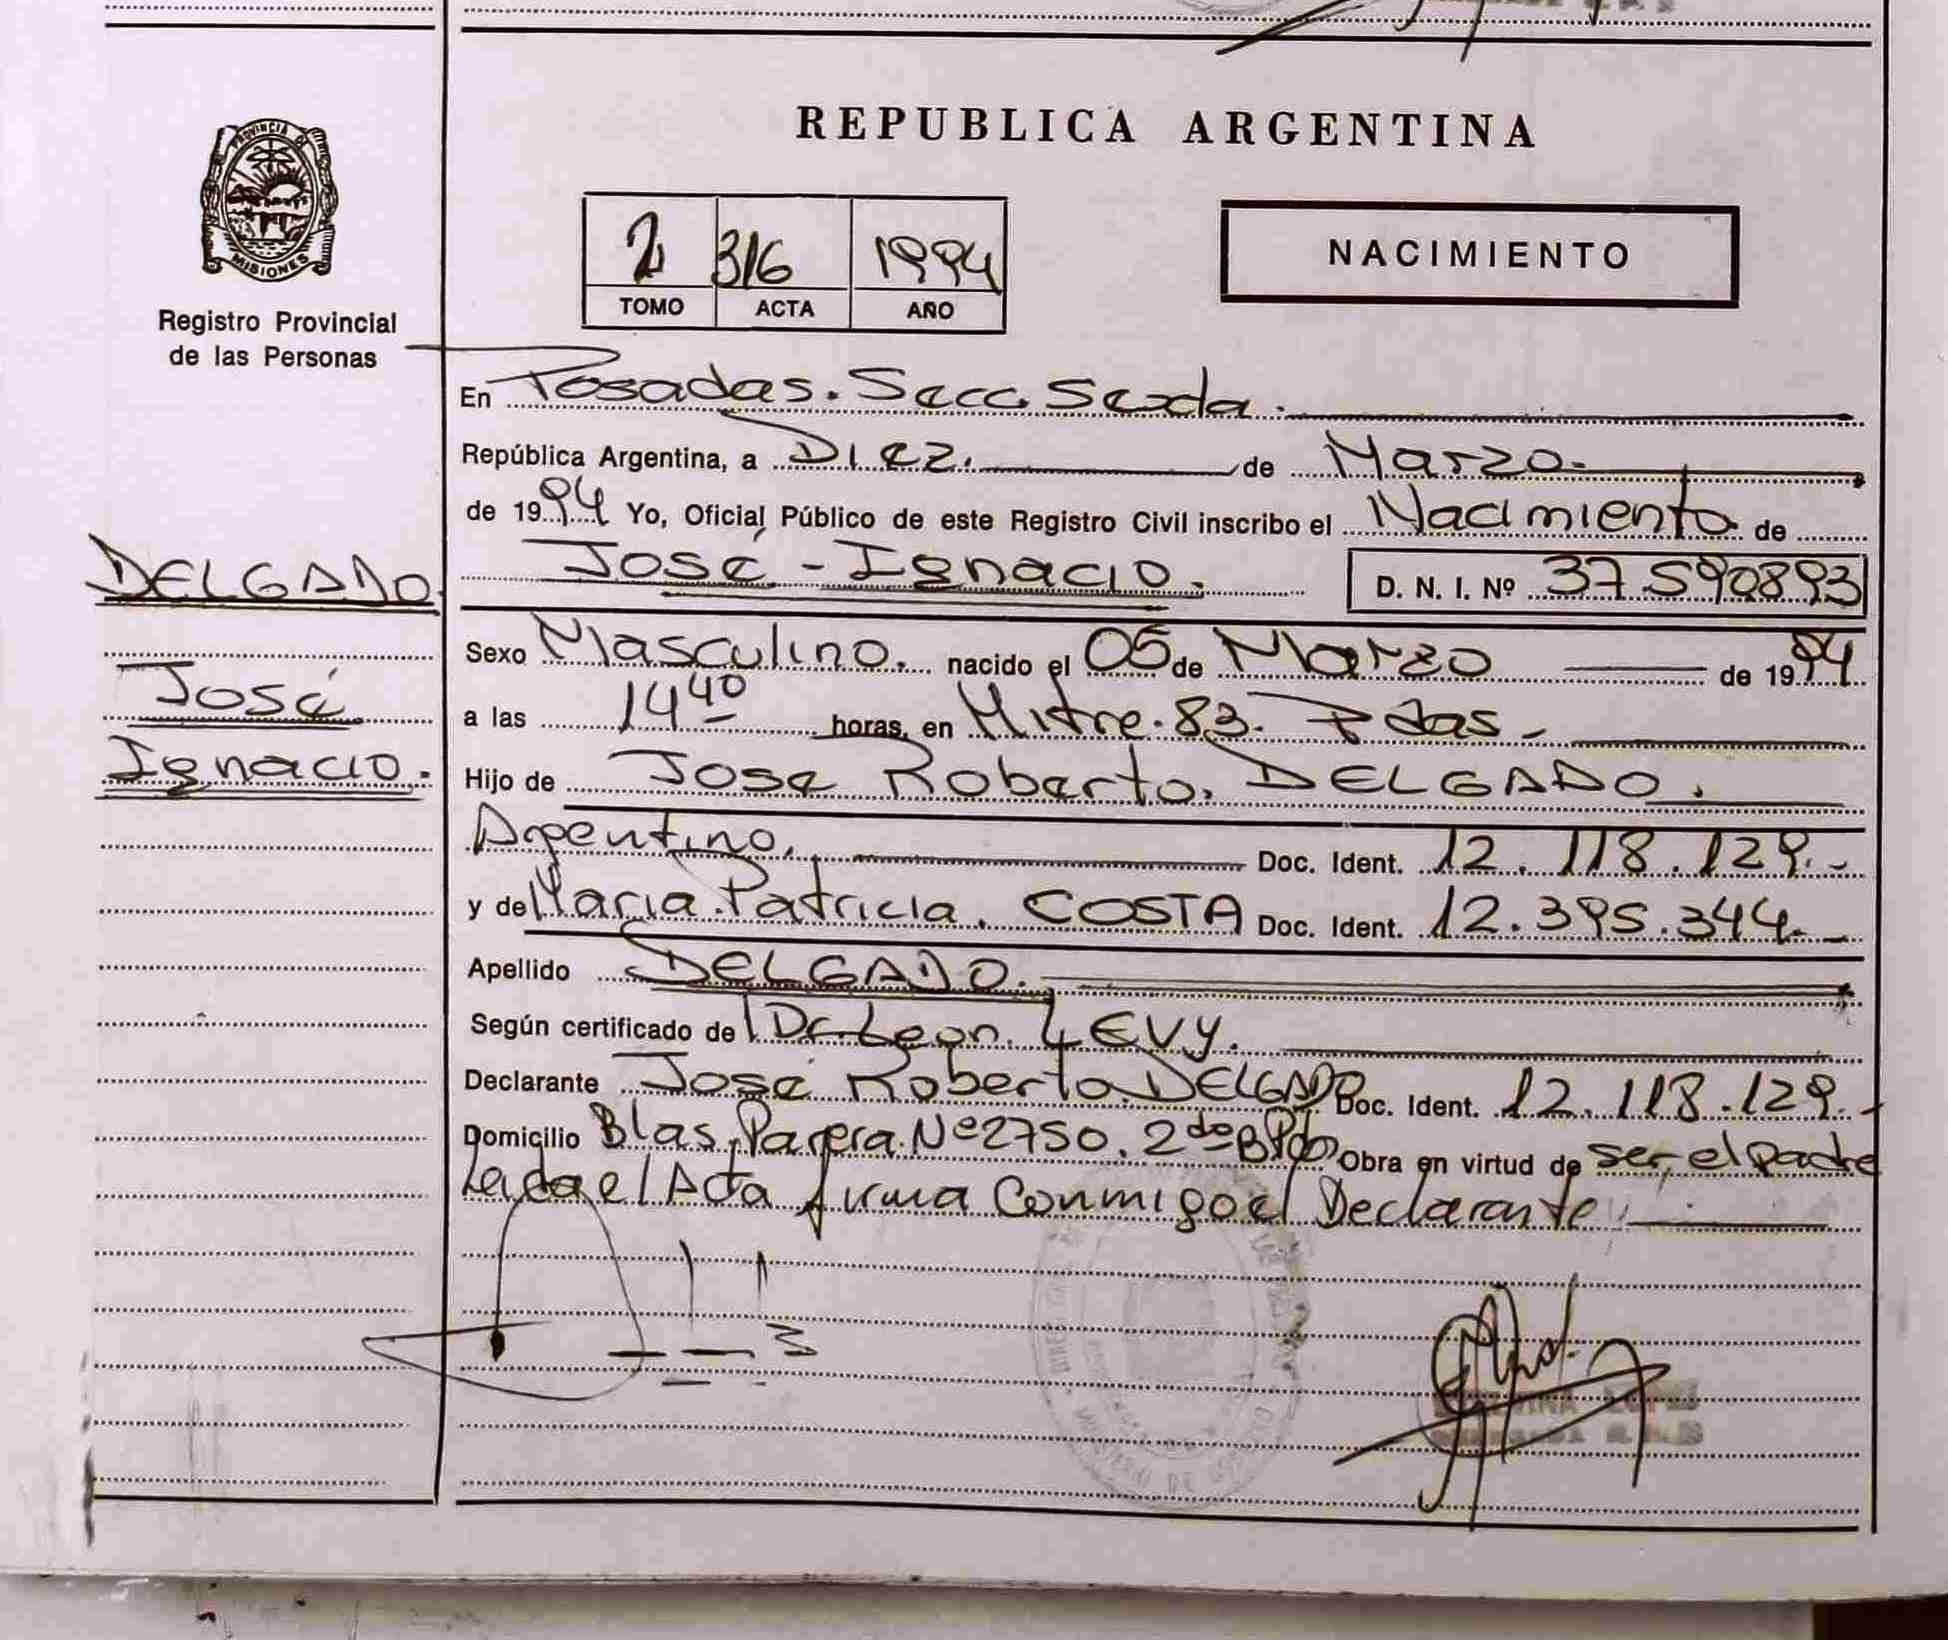 PROVINCIA DE
MISIONES
Registro Provincial
de las Personas
DELGADO.
José
Ignacio.
REPUBLICA ARGENTINA
2 316 1994
TOMO ACTA AÑO
NACIMIENTO
En Posadas. Secc. Sexta.
República Argentina, a Diez. de Marzo.
de 1994 Yo, Oficial Público de este Registro Civil inscribo el Nacimiento de
José - Ignacio. D. N. I. Nº 37.590893
Sexo Masculino. nacido el 05 de Marzo de 1994
a las 14 40 horas, en Mitre. 83. Pdas.
Hijo de Jose Roberto. DELGADO.
Argentino. Doc. Ident. 12.118.129.-
y de Maria. Patricia. COSTA Doc. Ident. 12.395.344.-
Apellido DELGADO.
Según certificado de Dr. Leon. LEVY.
Declarante José Roberto DELGADO Doc. Ident. 12.118.129.-
Domicilio Blas. Parera. Nº 2750. 2do B Pdo Obra en virtud de ser el padre
Leida el Acta firma Conmigo el Declarante